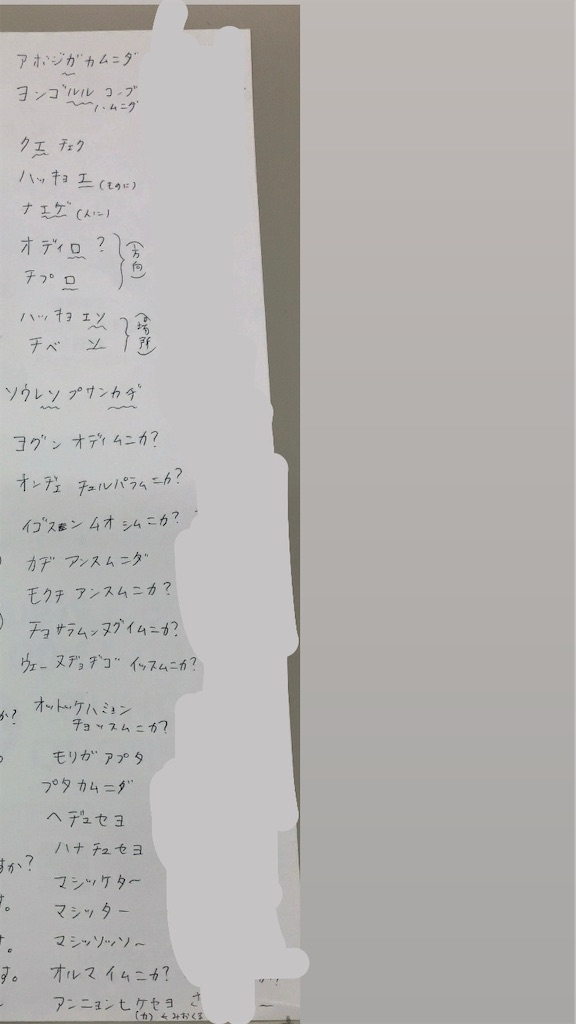 アボジガカムニダ
ヨンゴルル コーブ
ハムニダ
クエ チェク
ハッキョエ(ものに)
ナエゲ(人に)
オディロ?
チプロ
(方向)
ハッキョエソ
チベソ
(の場所)
ソウレソ プサンカヂ
ヨグン オディムニカ?
オンヂェ チュルパラムニカ?
イゴスン ムオシムニカ?
カヂ アンスムニダ
モクチ アンスムニカ?
チョサラムン ヌグイムニカ?
ウェー ヌヂョヂゴ イッスムニカ?
か? オットッケハミョン
チョッスムニカ?
モリガアプタ
プタカムニダ
ヘヂュセヨ
すか? ハナチュセヨ
マシッケター
す。 マシッター
す。 マシッソッソー
す。 オルマイムニカ?
アンニョンヒケセヨ